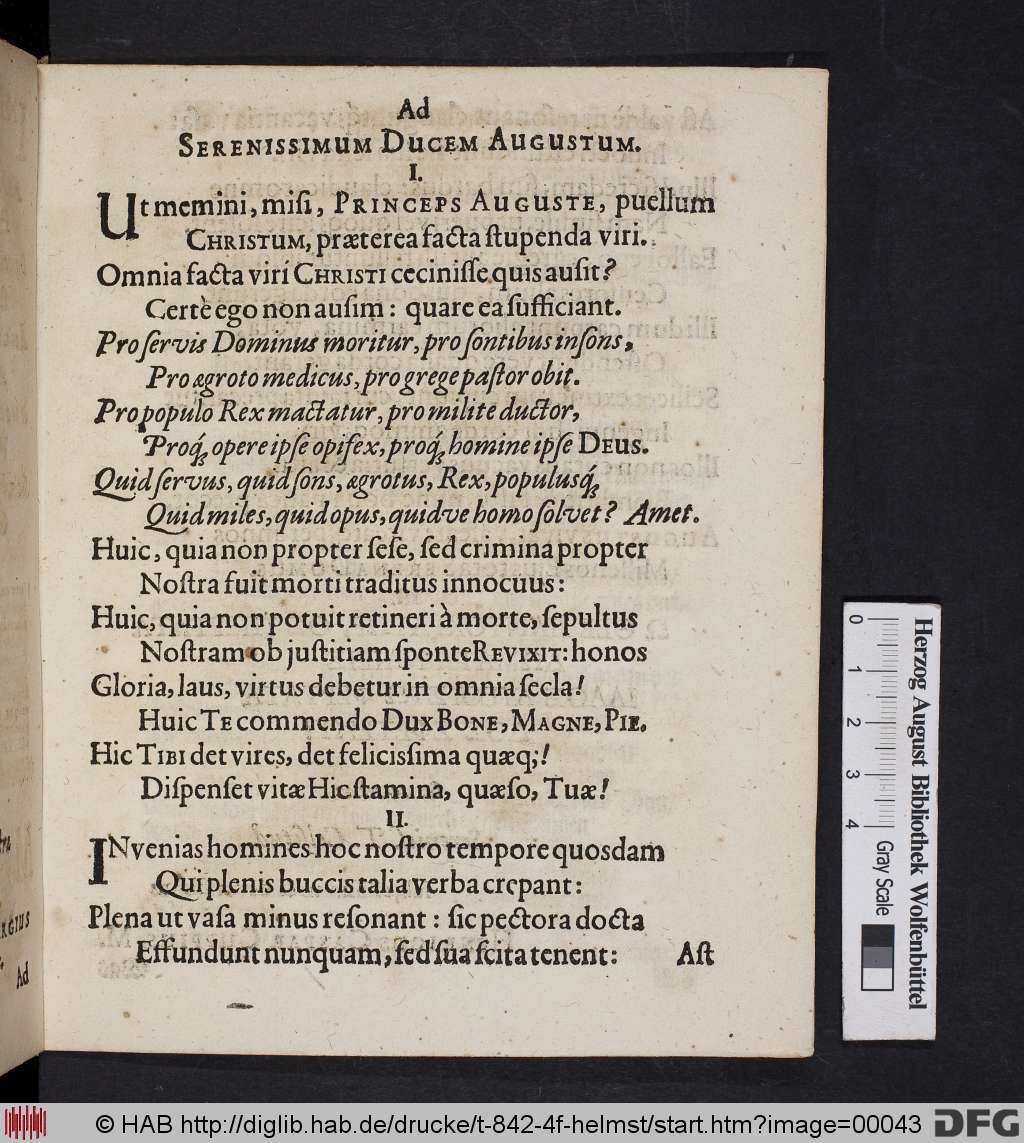 Ad
SERENISSIMUM DUCEM AUGUSTUM.
I.
Ut memini, miſi, PRINCEPS AUGUSTE, puellum
CHRISTUM, præterea facta ſtupenda viri.
Omnia facta virí CHRISTI ceciniſſe quis auſit?
Certè ego non auſim: quare ea ſufficiant.
Pro ſervis Dominus moritur, pro ſontibus inſons,
Pro ægroto medicus, pro grege paſtor obit.
Pro populo Rex mactatur, pro milite ductor,
Proq́; opere ipſe opifex, proq́; homine ipſe DEUS.
Quid ſervus, quid ſons, ægrotus, Rex, populusq́;
Quid miles, quid opus, quidve homo ſolvet? Amet.
Huic, quia non propter ſeſe, ſed crimina propter
Noſtra fuit morti traditus innocuus:
Huic, quia non potuit retineri à morte, ſepultus
Noſtram ob juſtitiam ſponte REVIXIT: honos
Gloria, laus, virtus debetur in omnia ſecla!
Huic TE commendo DUX BONE, MAGNE, PIE.
Hic TIBI det vires, det feliciſſima quæq;!
Diſpenſet vitæ Hic ſtamina, quæſo, Tuæ!
II.
INvenias homines hoc noſtro tempore quosdam
Qui plenis buccis talia verba crepant:
Plena ut vaſa minus reſonant: ſic pectora docta
Effundunt nunquam, ſed ſua ſcita tenent:
Aſt
RGIUS
Ad
0 1 2 3 4
Herzog August Bibliothek Wolfenbüttel
Gray Scale
© HAB http://diglib.hab.de/drucke/t-842-4f-helmst/start.htm?image=00043
DFG